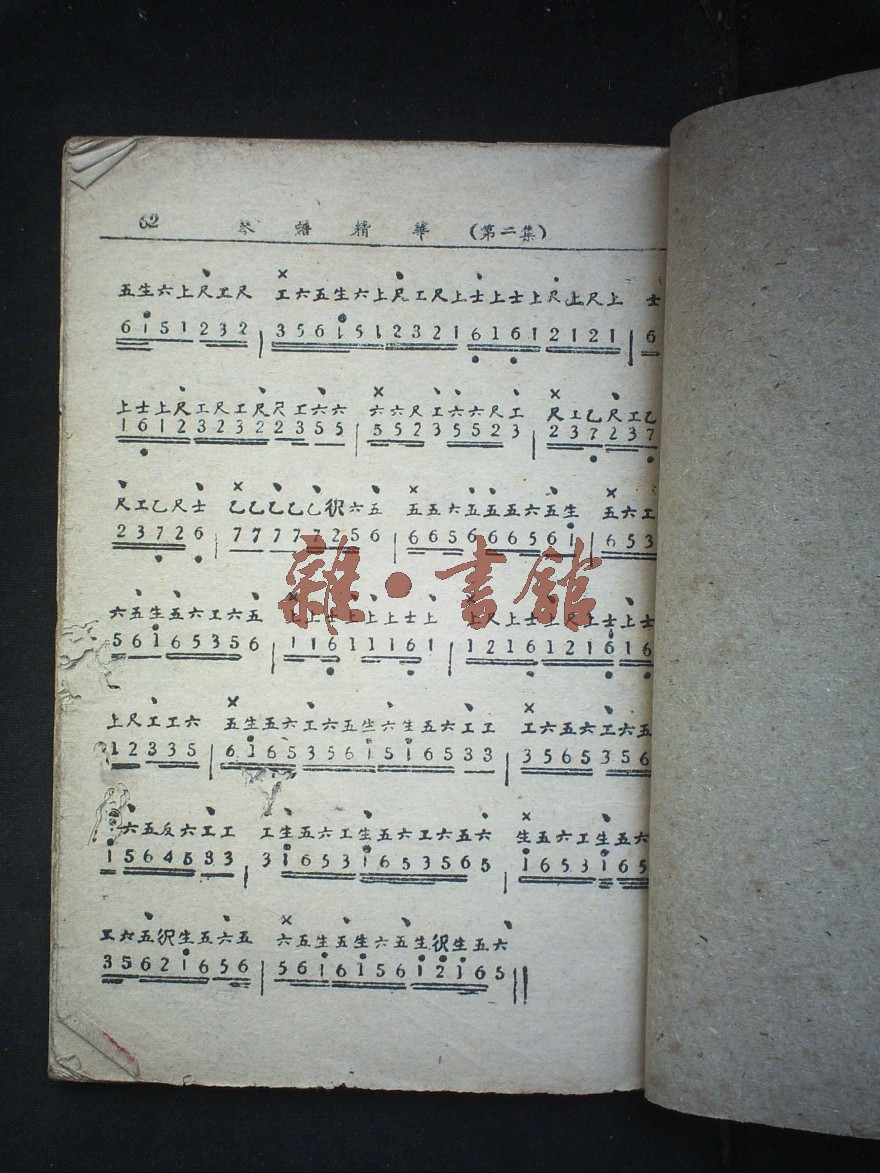 62 琴譜精華 (第二集)
五生六上尺工尺 工六五生六上尺工尺上士上士上尺上尺上 士
6 1 5 1 2 3 2 | 3 5 6 1 5 1 2 3 2 1 6 1 6 1 2 1 2 1 | 6
上士上尺工尺工尺尺工六六 六六尺工六六尺工 尺工乙尺工乙
1 6 1 2 3 2 3 2 2 3 5 5 | 5 5 2 3 5 5 2 3 | 2 3 7 2 3 7
尺工乙尺士 乙乙乙乙乙伬六五 五五六五五五六五生 五六工
2 3 7 2 6 | 7 7 7 7 7 2 5 6 | 6 6 5 6 6 6 5 6 1 | 6 5 3
雜·書館
六五生五六工六五
5 6 1 6 5 3 5 6 | 1 1 6 1 1 1 6 1 | 1 2 1 6 1 2 1 6 1 6
上尺工工六 五生五六工六五生六生五六工工 工六五六工六五
1 2 3 3 5 | 6 1 6 5 3 5 6 1 5 1 6 5 3 3 | 3 5 6 5 3 5 6
六五反六工工 工生五六工生五六工六五六 生五六工生五六
1 5 6 4 5 3 3 | 3 1 6 5 3 1 6 5 3 5 6 5 | 1 6 5 3 1 6 5
工六五伬生五六五 六五生五生六五生伬生五六
3 5 6 2 1 6 5 6 | 5 6 1 6 1 5 6 1 2 1 6 5 ||